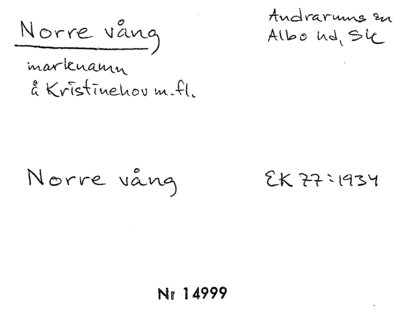 Norre vång
Andrarums sn
Albo hd, Sk
marknamn
å Kristinehov m.fl.
Norre vång
EK 77:1934
Nr 14999